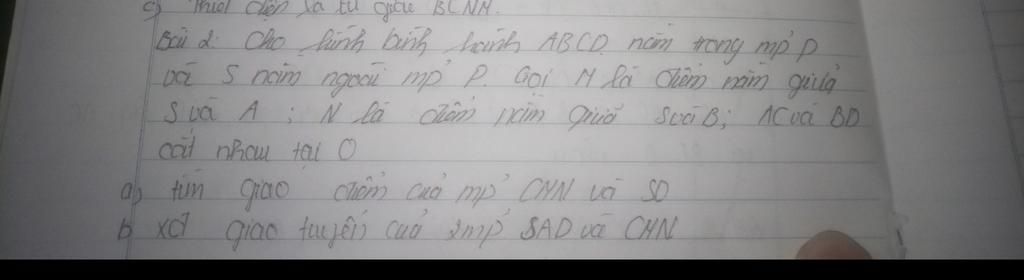 c) Thiết diện là tứ giác BCNM.
Bài 2: Cho hình bình hành ABCD nằm trong mp' P
và S nằm ngoài mp' P. Gọi M là điểm nằm giữa
S và A ; N là điểm nằm giữa S và B; AC và BD
cắt nhau tại O
a) tìm giao điểm của mp' CMN và SO
b xđ giao tuyến của 2mp' SAD và CMN